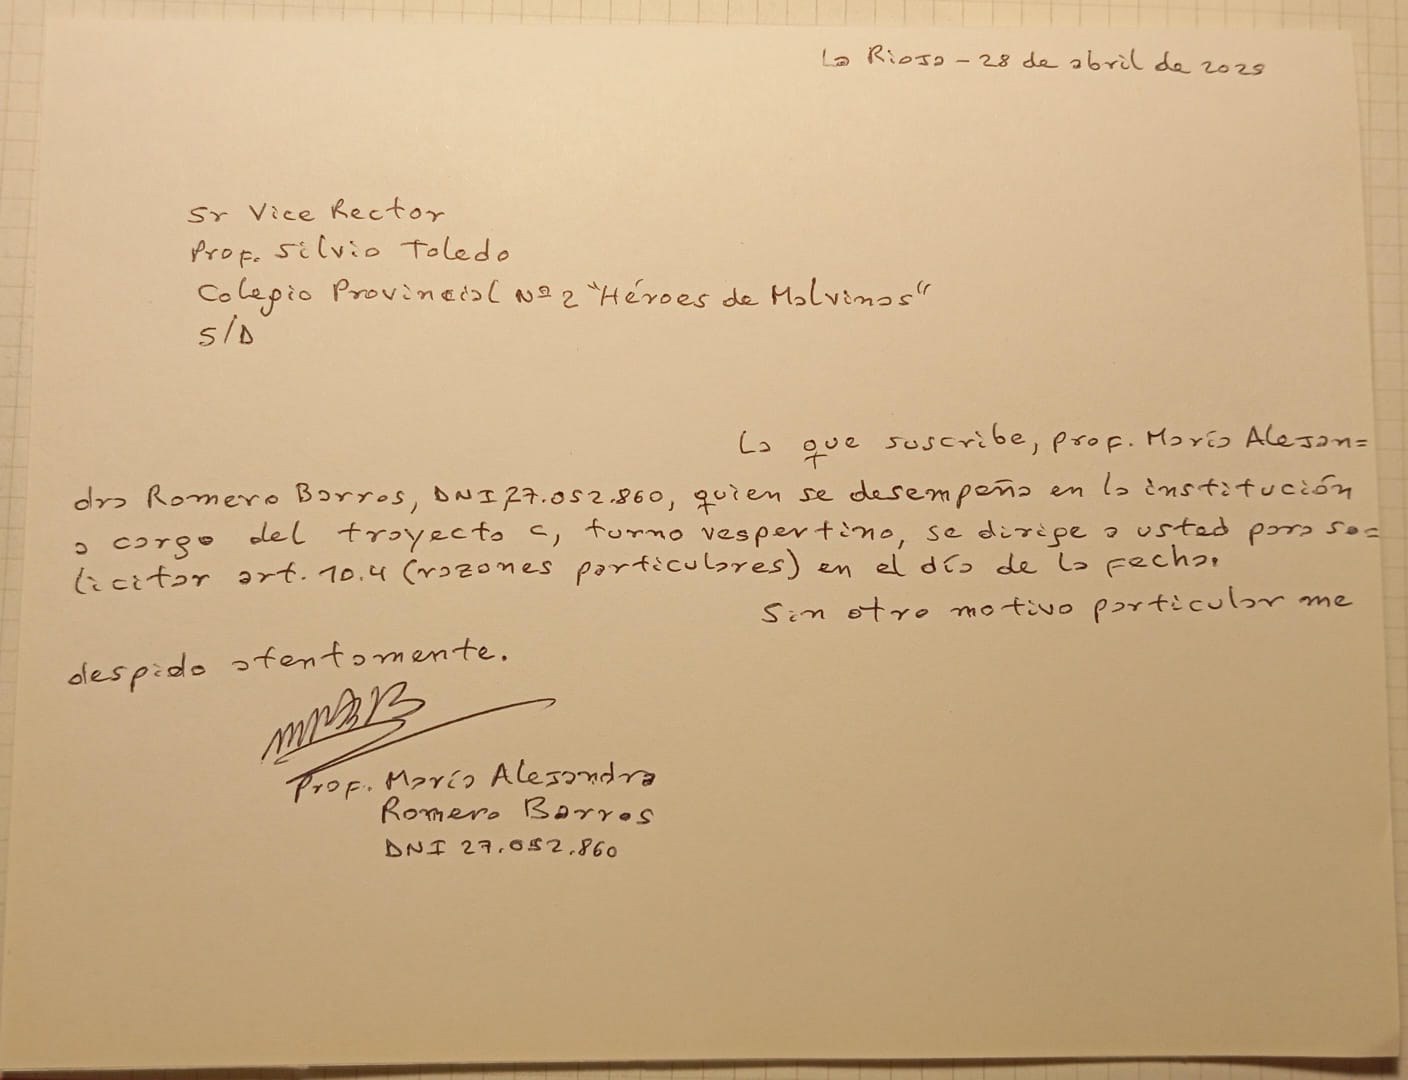 La Rioja - 28 de abril de 2025
Sr Vice Rector
Prof. Silvio Toledo
Colegio Provincial Nº 2 "Héroes de Malvinas"
S/D
La que suscribe, prof. María Alejan=
dra Romero Barros, DNI 27.052.860, quien se desempeña en la institución
a cargo del trayecto C, turno vespertino, se dirige a usted para so=
licitar art. 10.4 (razones particulares) en el día de la fecha.
Sin otro motivo particular me
despido atentamente.
Prof. María Alejandra
Romero Barros
DNI 27.052.860